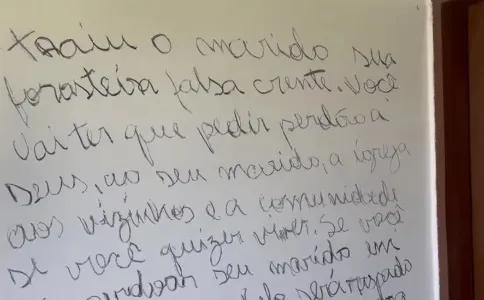 traiu o marido sua
forasteira falsa crente. você
vai ter que pedir perdão a
Deus, ao seu marido, a igreja
aos vizinhos e a comunidade
se você quizer viver. se você
perdoar seu marido em
será raspado